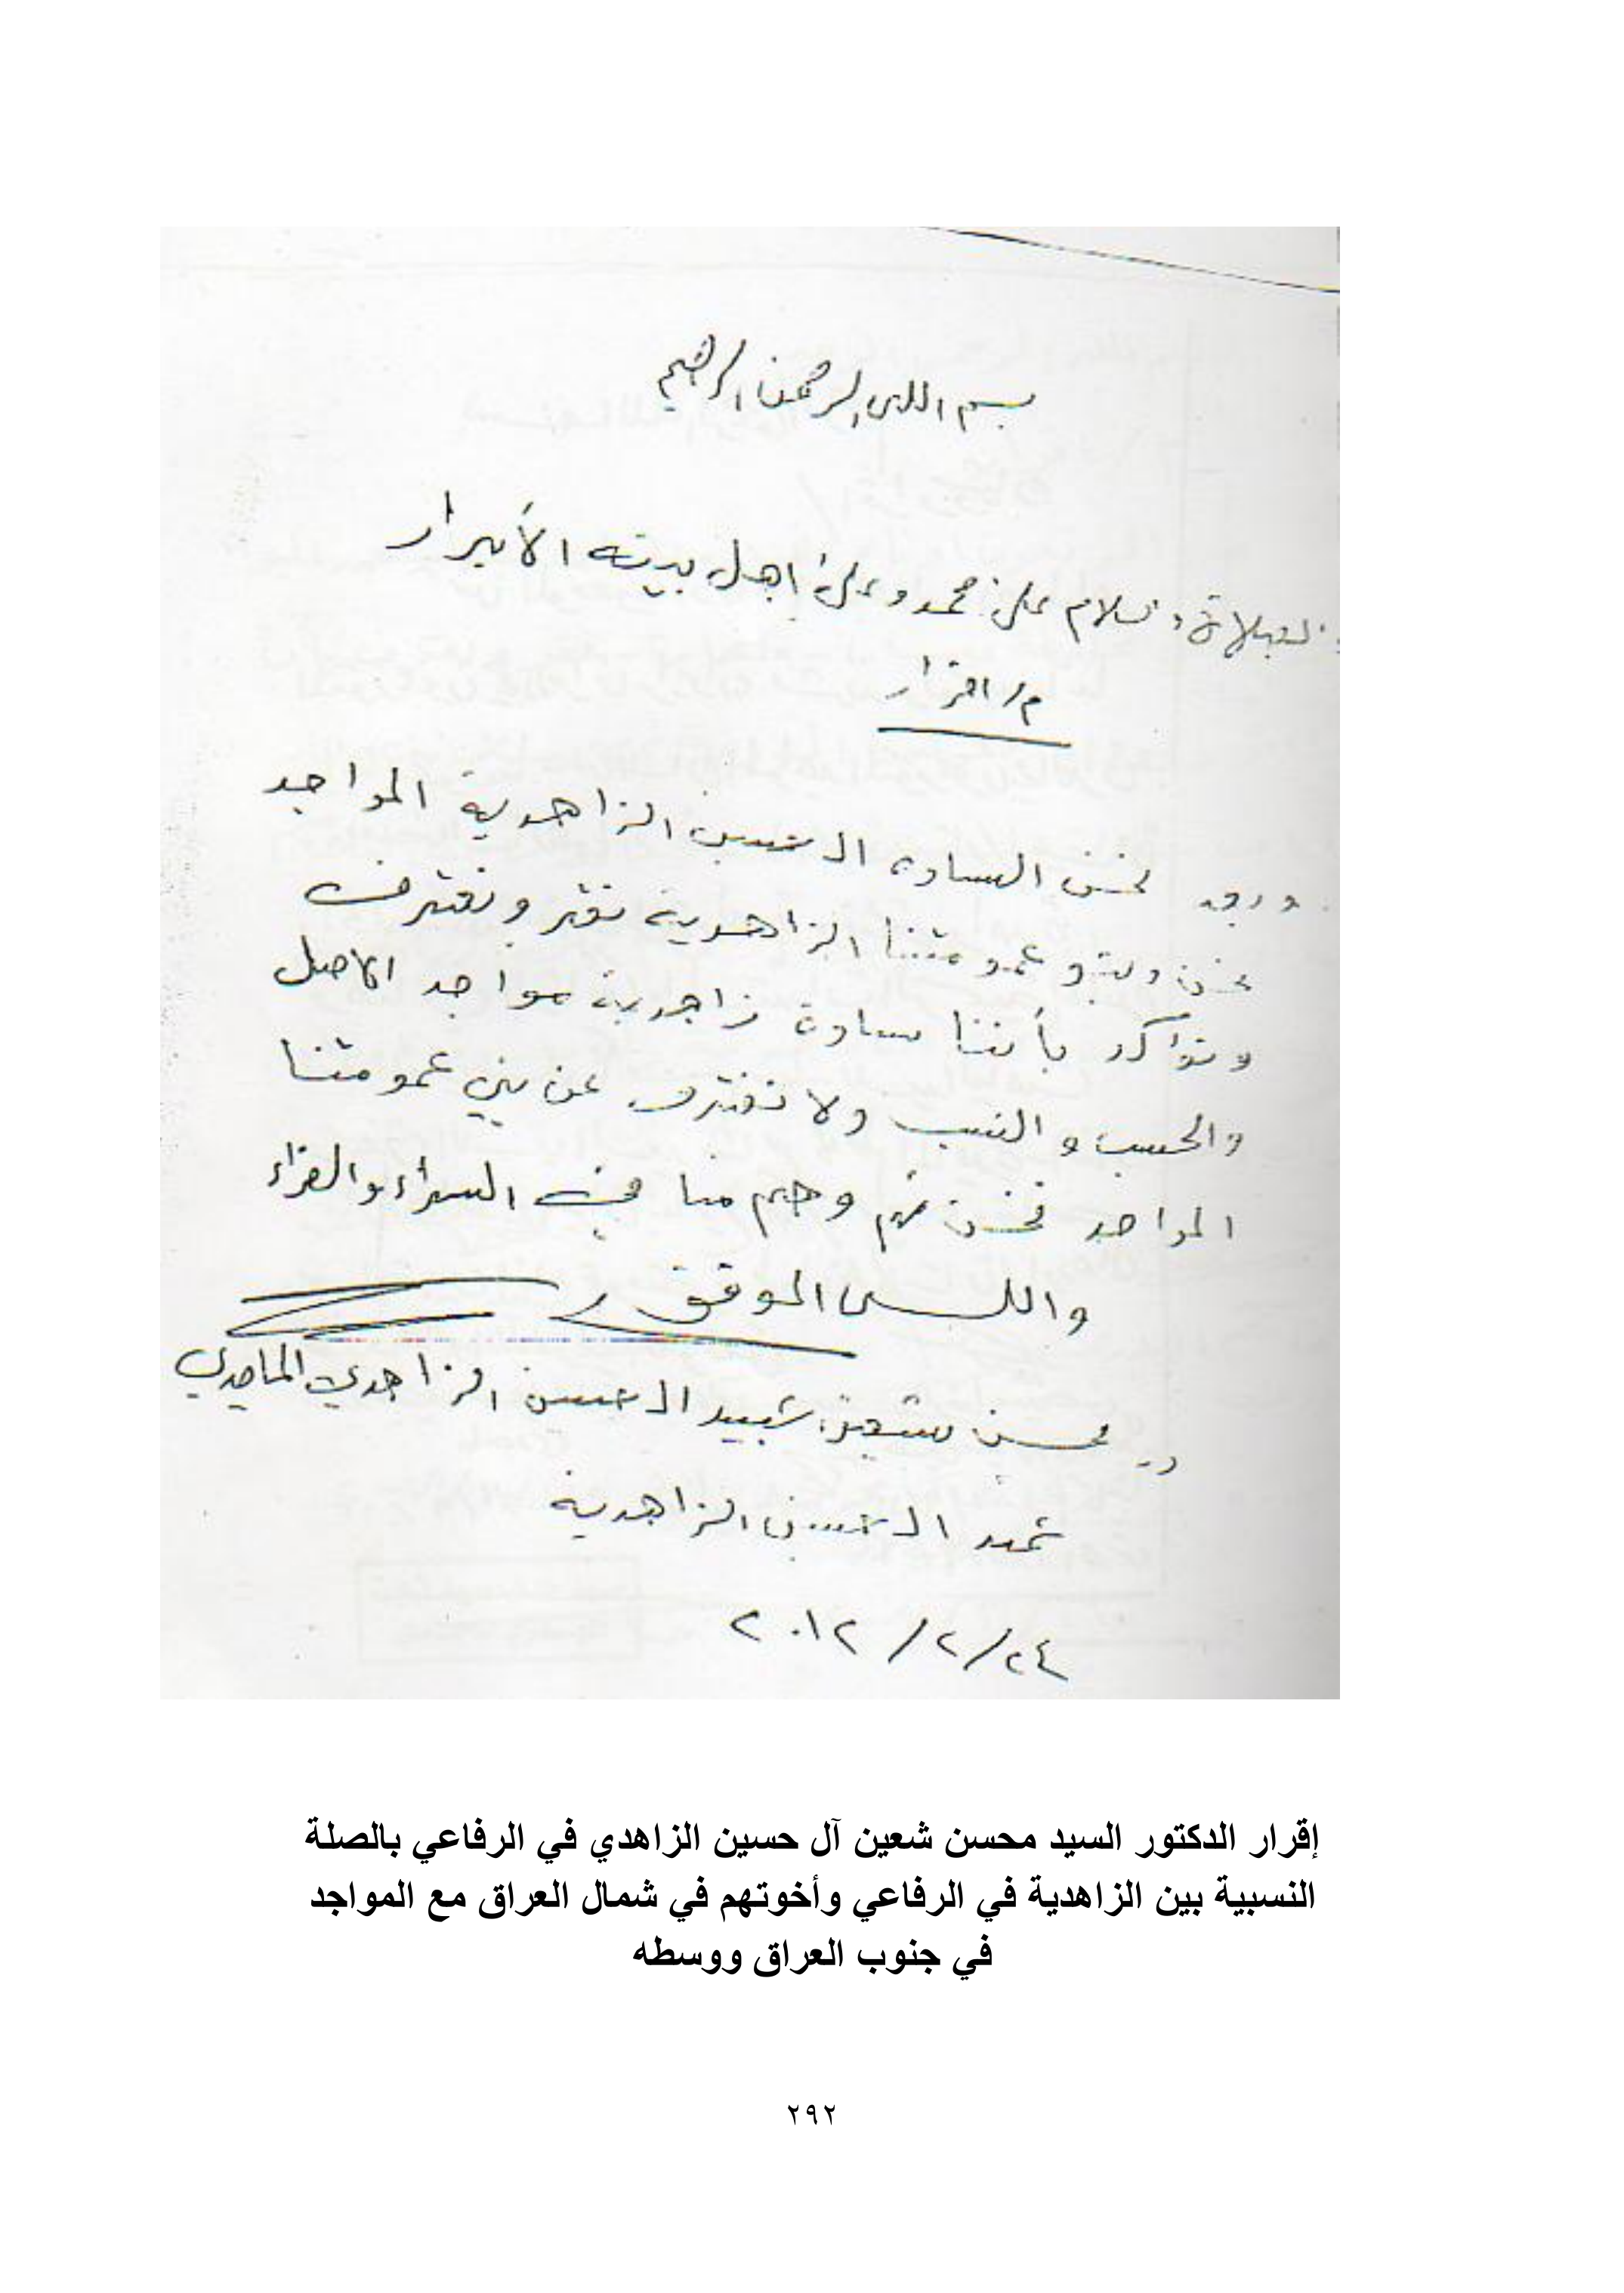 بسم الله الرحمن الرحيم
والصلاة والسلام على محمد وعلى اهل بيته الأبرار
م/ اقرار
وبعد نحن السادة ال حسين الزاهدية المواجد
نحن وبنو عمومتنا الزاهدية نقر ونعترف
ونؤكد بأننا سادة زاهدية مواجد الاصل
والحسب والنسب ولا نفترق عن بني عمومتنا
المواجد فنحن منهم وهم منا في السراء والضراء
والله الموفق
د. محسن شعين شبيد ال حسين الزاهدي الماجدي
عميد ال حسين الزاهدية
٢٤/٢/٢٠١٢
إقرار الدكتور السيد محسن شعين آل حسين الزاهدي في الرفاعي بالصلة
النسبية بين الزاهدية في الرفاعي وأخوتهم في شمال العراق مع المواجد
في جنوب العراق ووسطه
٢٩٢